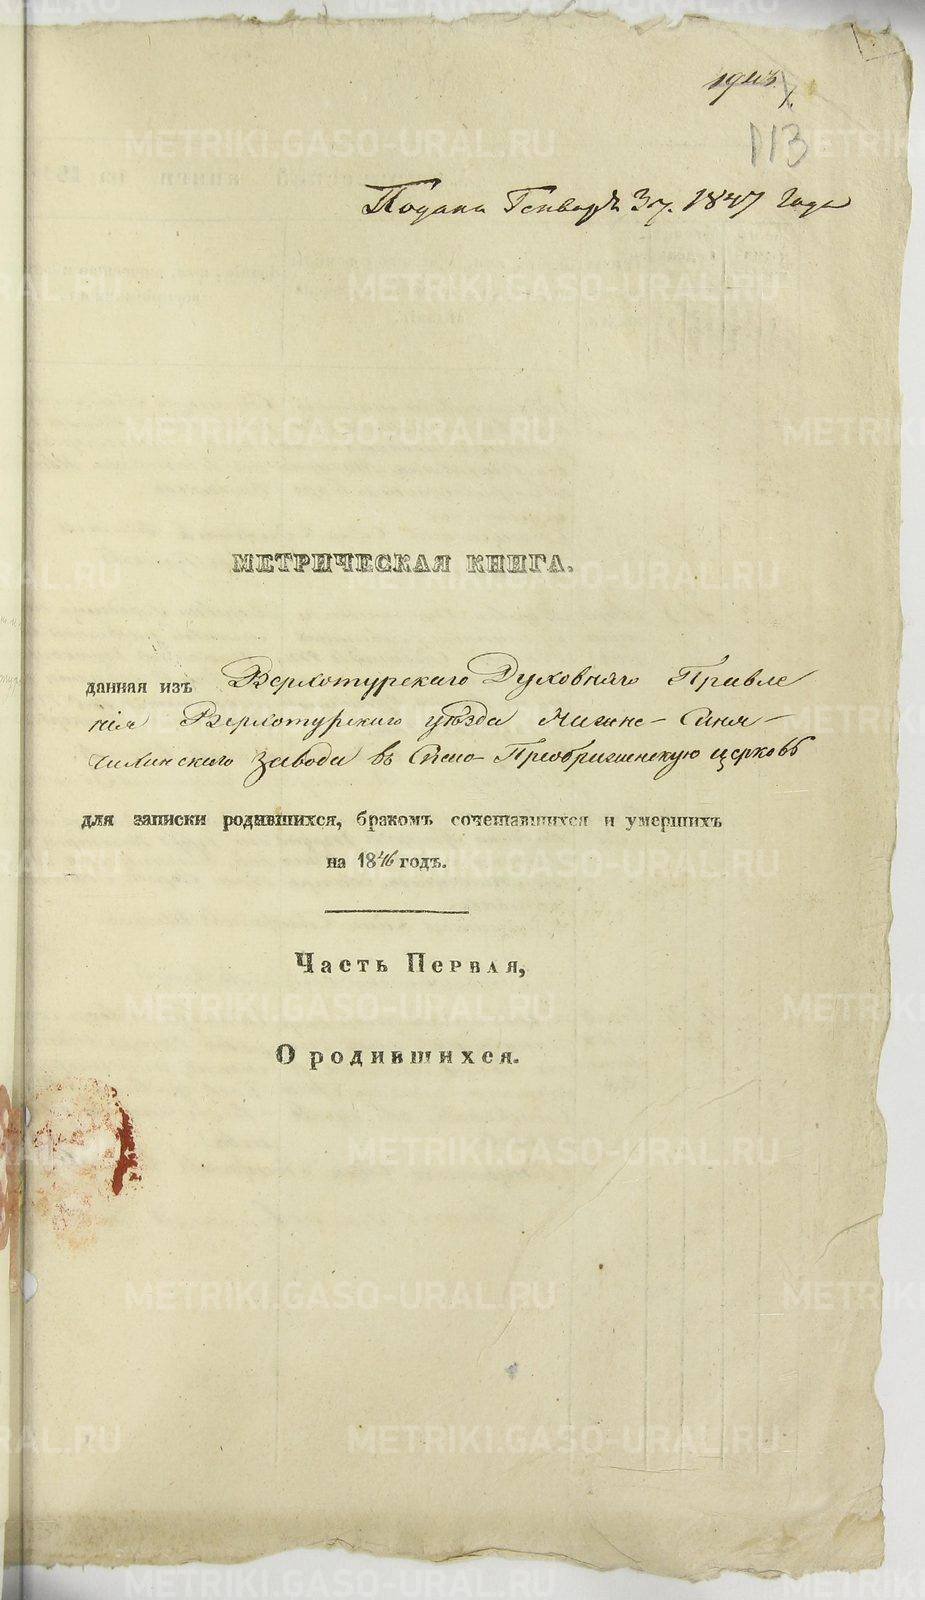 113
Подана Генваря 3 д. 1847 года
МЕТРИЧЕСКАЯ КНИГА.
данная изъ Верхотурскаго Духовнаго Правле
нія Верхотурскаго уѣзда Нижне-Синя-
чихинскаго завода въ Спасо-Преображенскую церковь
для записки родившихся, бракомъ сочетавшихся и умершихъ
на 1846 годъ.
Часть Первая,
О родившихся.
METRIKI.GASO-URAL.RU